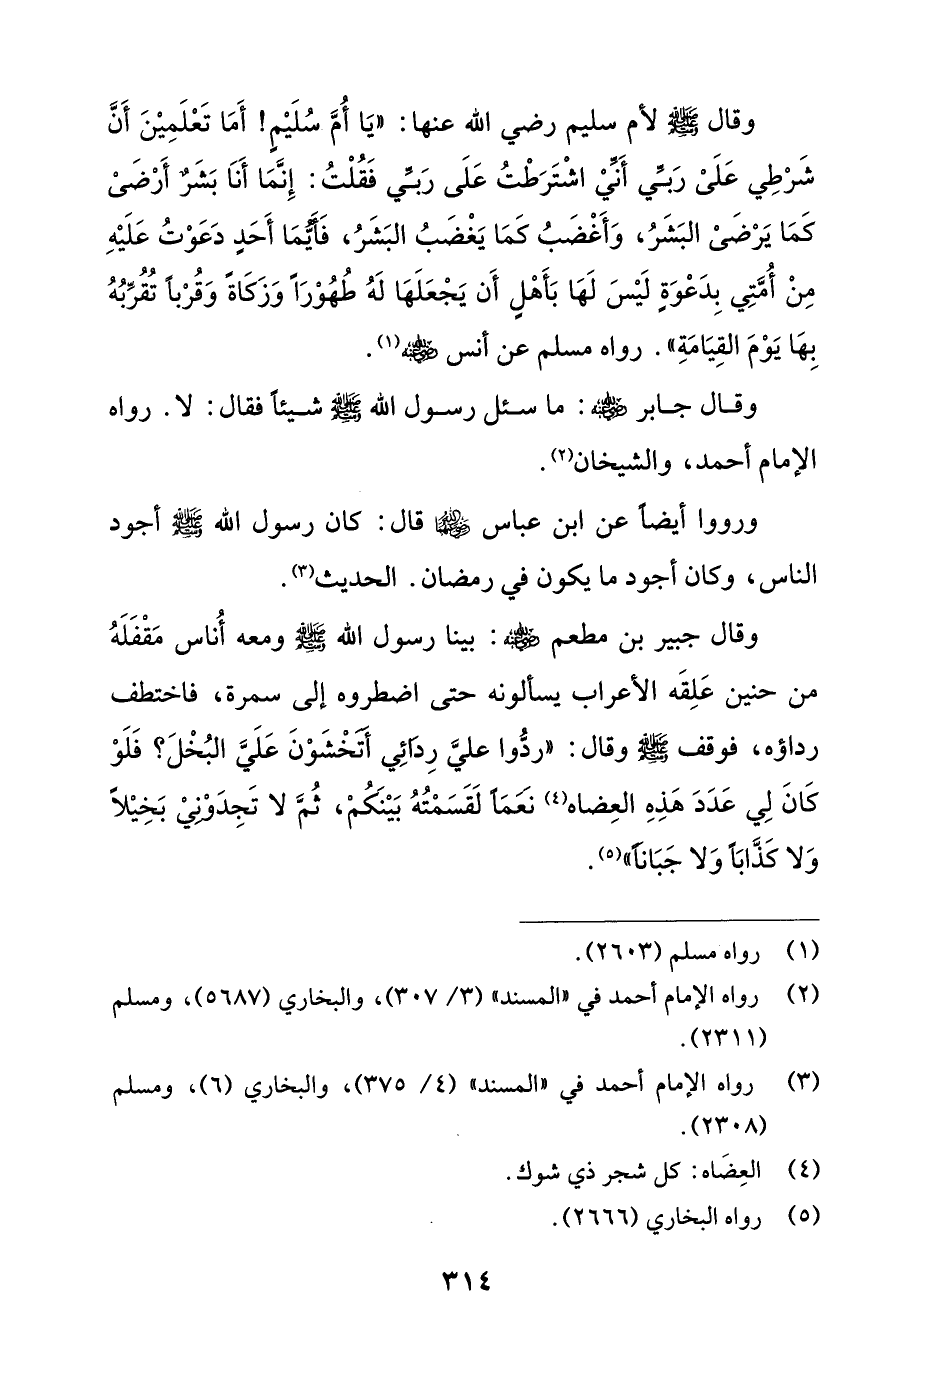 وقال ﷺ لأم سليم رضي الله عنها: «يَا أُمَّ سُلَيْمٍ! أَمَا تَعْلَمِيْنَ أَنَّ
شَرْطِي عَلَىْ رَبِّي أَنِّيْ اشْتَرَطْتُ عَلَى رَبِّي فَقُلْتُ: إِنَّمَا أَنَا بَشَرٌ أَرْضَىْ
كَمَا يَرْضَىْ البَشَرُ، وَأَغْضَبُ كَمَا يَغْضَبُ البَشَرُ، فَأَيُّمَا أَحَدٍ دَعَوْتُ عَلَيْهِ
مِنْ أُمَّتِي بِدَعْوَةٍ لَيْسَ لَهَا بَأَهْلٍ أَن يَجْعَلَهَا لَهُ طُهُوْرَاً وَزَكَاةً وَقُرْباً تُقُرِّبُهُ
بِهَا يَوْمَ القِيَامَةِ». رواه مسلم عن أنس رضي الله عنه(١).
وقـال جـابر رضي الله عنه: ما سـئل رسـول الله ﷺ شـيئاً فقال: لا. رواه
الإمام أحمد، والشيخان(٢).
ورووا أيضاً عن ابن عباس رضي الله عنهما قال: كان رسول الله ﷺ أجود
الناس، وكان أجود ما يكون في رمضان. الحديث(٣).
وقال جبير بن مطعم رضي الله عنه: بينا رسول الله ﷺ ومعه أُناس مَقْفَلَهُ
من حنين عَلِقَه الأعراب يسألونه حتى اضطروه إلى سمرة، فاختطف
رداؤه، فوقف ﷺ وقال: «ردُّوا عليَّ رِدَائِي أَتَخْشَوْنَ عَلَيَّ البُخْلَ؟ فَلَوْ
كَانَ لِي عَدَدَ هَذِهِ العِضاه(٤) نَعَمَاً لَقَسَمْتُهُ بَيْنَكُمْ، ثُمَّ لا تَجِدَوْنِيْ بَخِيْلاً
وَلا كَذَّابَاً وَلا جَبَاناً»(٥).
(١) رواه مسلم (٢٦٠٣).
(٢) رواه الإمام أحمد في «المسند» (٣/ ٣٠٧)، والبخاري (٥٦٨٧)، ومسلم
(٢٣١١).
(٣) رواه الإمام أحمد في «المسند» (٤/ ٣٧٥)، والبخاري (٦)، ومسلم
(٢٣٠٨).
(٤) العِضَاه: كل شجر ذي شوك.
(٥) رواه البخاري (٢٦٦٦).
٣١٤